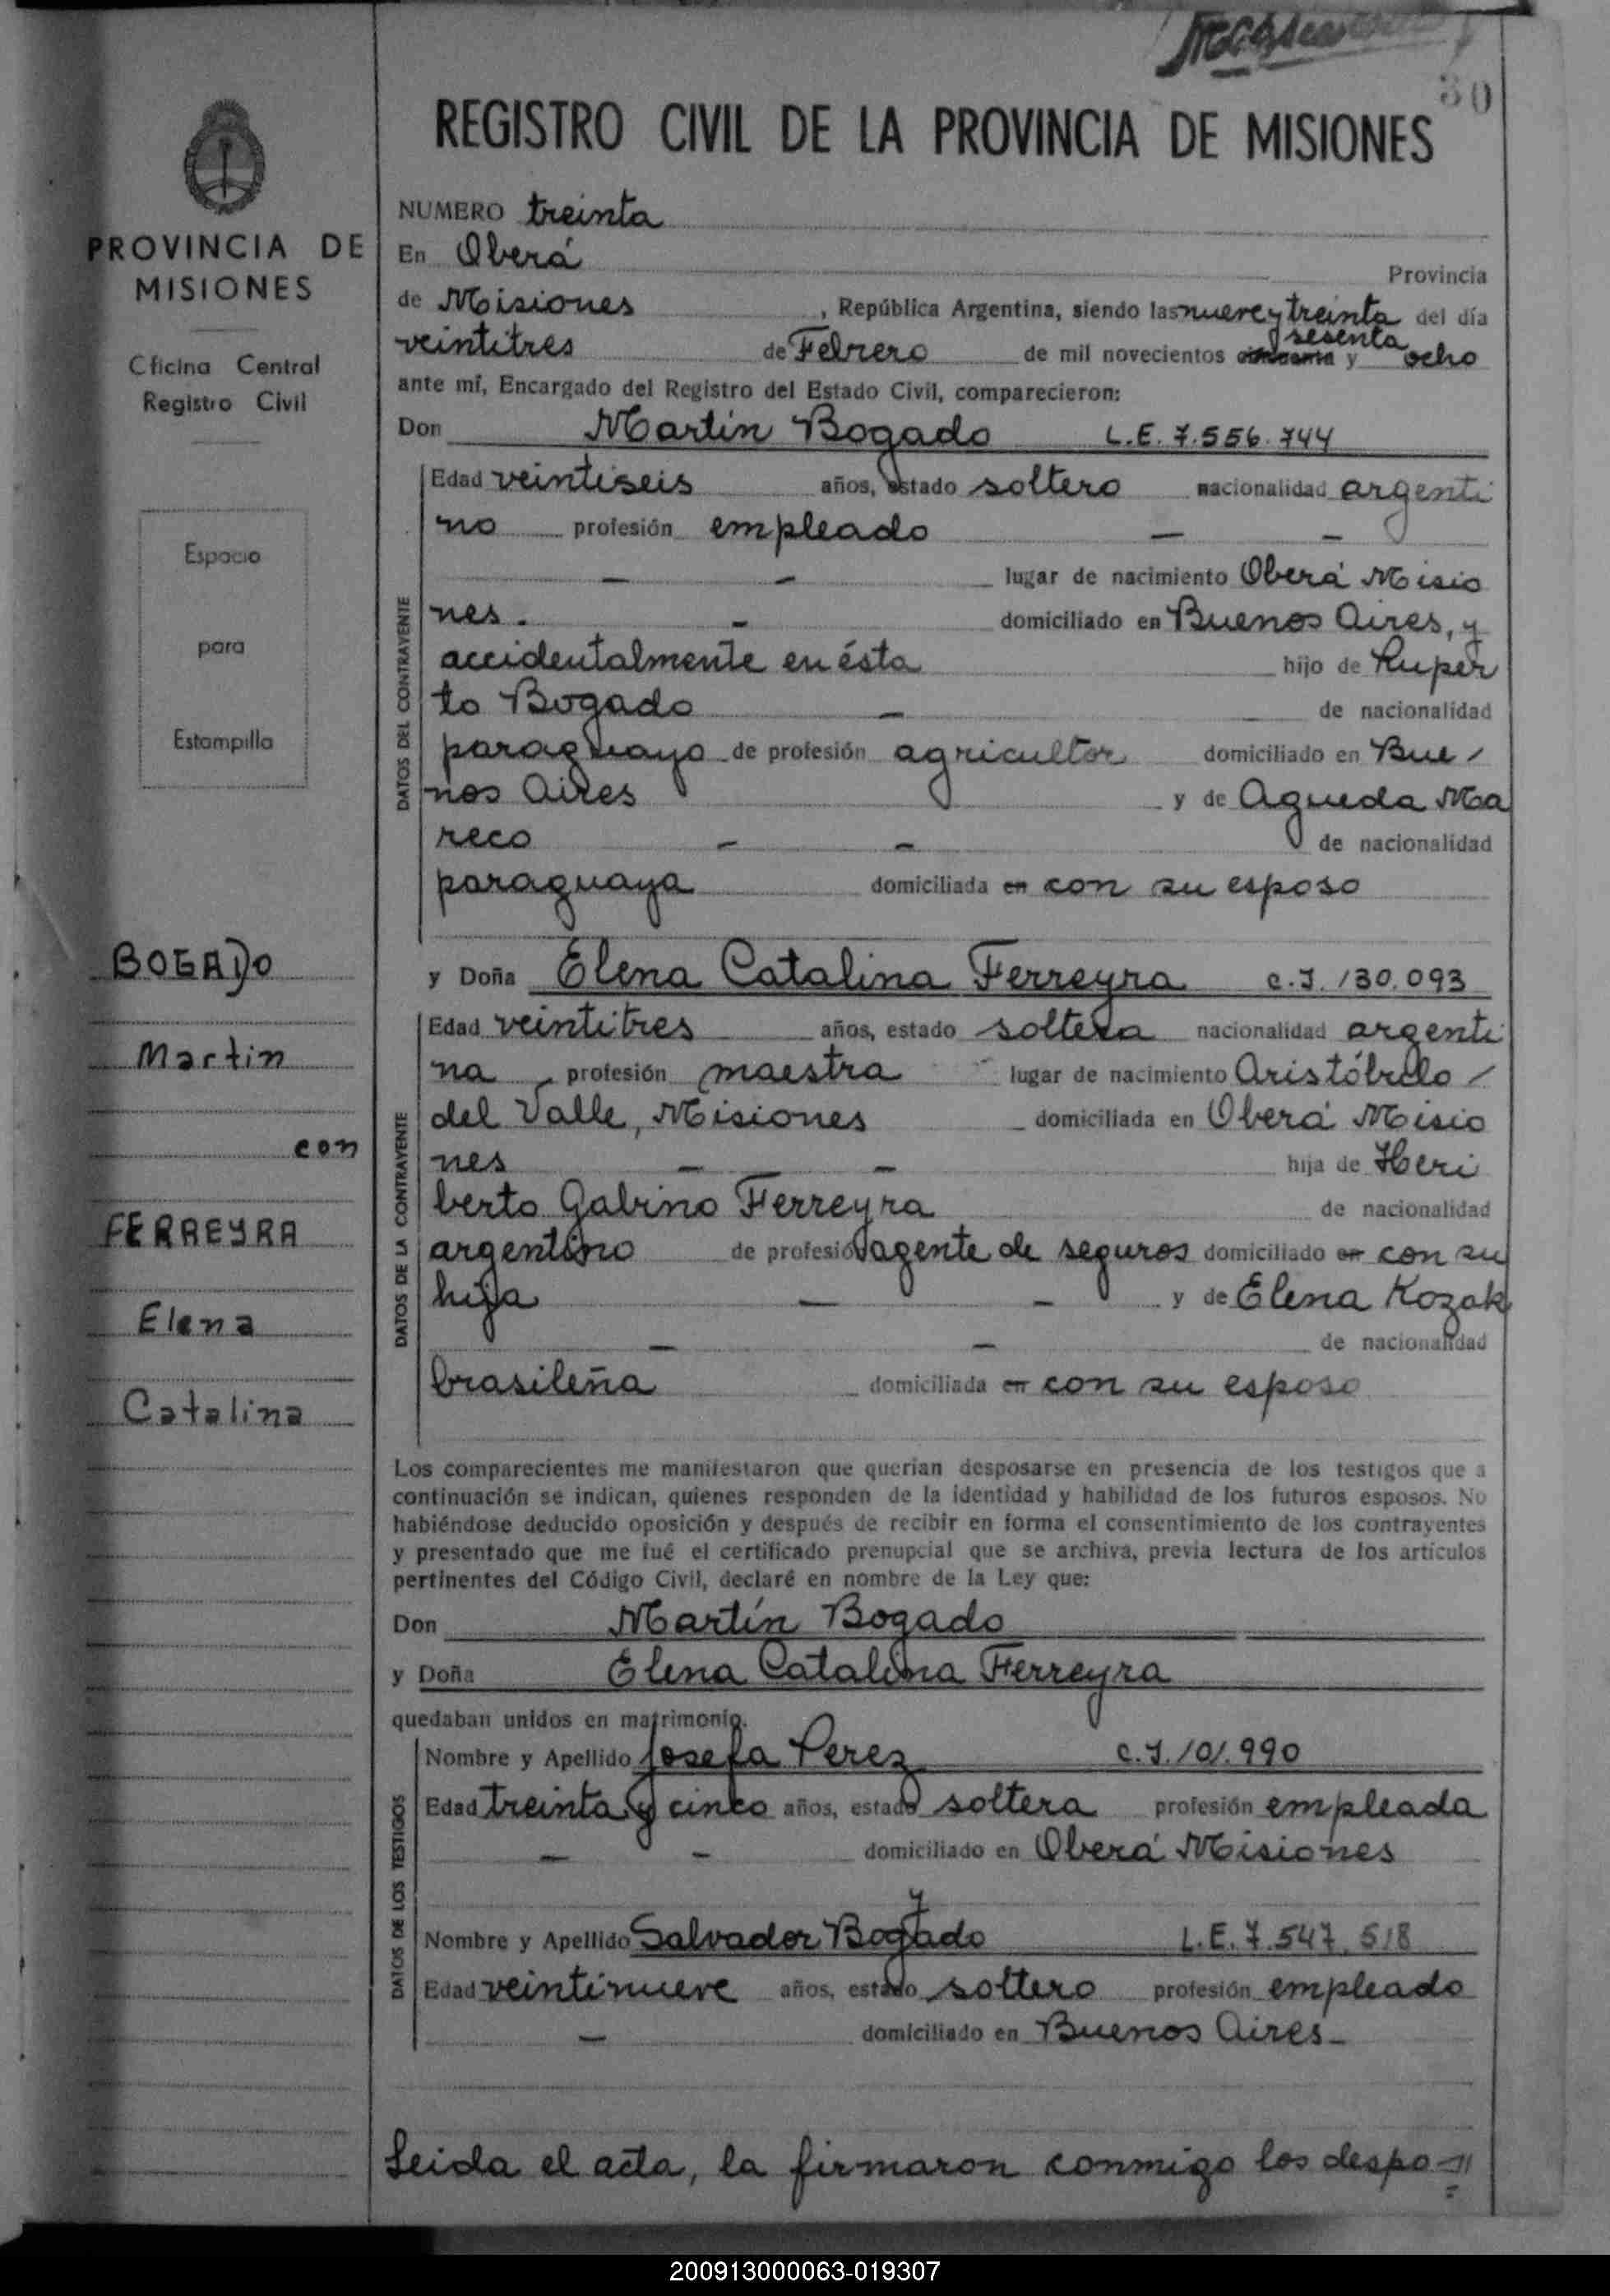 30
REGISTRO CIVIL DE LA PROVINCIA DE MISIONES
PROVINCIA DE
MISIONES
Oficina Central
Registro Civil
Espacio
para
Estampilla
BOGADO
Martin
con
FERREYRA
Elena
Catalina
NUMERO treinta
En Oberá Provincia
de Misiones, República Argentina, siendo las nueve y treinta del día
sesenta
veintitres de Febrero de mil novecientos cincuenta y ocho
ante mí, Encargado del Registro del Estado Civil, comparecieron:
Don Martín Bogado L.E. 7.556.744
DATOS DEL CONTRAYENTE
Edad veintiseis años, estado soltero nacionalidad argenti
no profesión empleado - -
- - lugar de nacimiento Oberá Misio
nes. - domiciliado en Buenos Aires, y
accidentalmente en ésta hijo de Ruper
to Bogado - de nacionalidad
paraguayo de profesión agricultor domiciliado en Bue /
nos Aires y de Agueda Ma
reco - - de nacionalidad
paraguaya domiciliada en con su esposo
y Doña Elena Catalina Ferreyra C.I. 130.093
DATOS DE LA CONTRAYENTE
Edad veintitres años, estado soltera nacionalidad argenti
na profesión maestra lugar de nacimiento Aristóbulo /
del Valle, Misiones domiciliada en Oberá Misio
nes - - hija de Heri
berto Gabino Ferreyra de nacionalidad
argentino de profesión agente de seguros domiciliado en con su
hija - - y de Elena Kozak
- - de nacionalidad
brasileña domiciliada en con su esposo
Los comparecientes me manifestaron que querían desposarse en presencia de los testigos que a
continuación se indican, quienes responden de la identidad y habilidad de los futuros esposos. No
habiéndose deducido oposición y después de recibir en forma el consentimiento de los contrayentes
y presentado que me fué el certificado prenupcial que se archiva, previa lectura de los artículos
pertinentes del Código Civil, declaré en nombre de la Ley que:
Don Martín Bogado
y Doña Elena Catalina Ferreyra
quedaban unidos en matrimonio.
DATOS DE LOS TESTIGOS
Nombre y Apellido Josefa Perez C.I. 101.990
Edad treinta y cinco años, estado soltera profesión empleada
- - domiciliado en Oberá Misiones
y
Nombre y Apellido Salvador Bogado L.E. 7.547.518
Edad veintinueve años, estado soltero profesión empleado
- domiciliado en Buenos Aires-
Leida el acta, la firmaron conmigo los despo=//
200913000063-019307